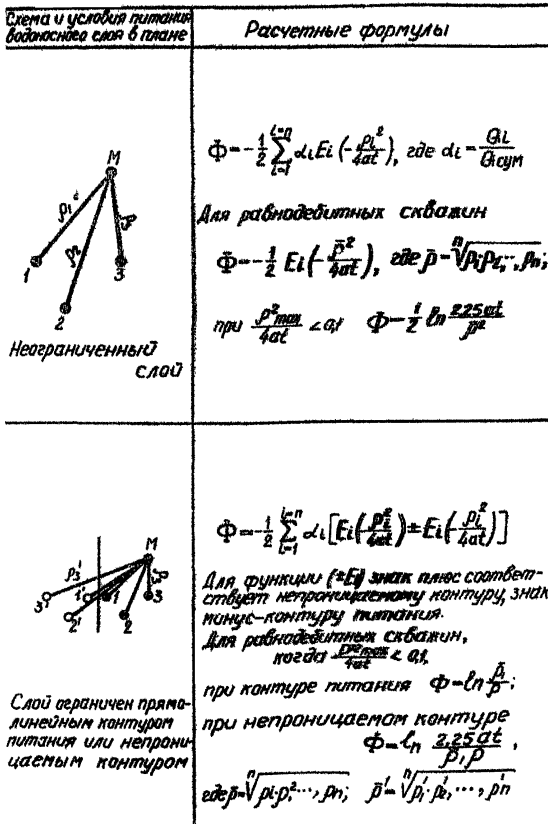 Схема и условия питания
водоносного слоя в плане
Расчетные формулы
M
ρ₁
ρ₂
ρ
1
2
3
Неограниченный
слой
Φ = -1/2 Σ(i=1, i=n) αi Ei(-ρi²/4at), где αi = Qi/Qiсум
Для равнодебитных скважин
Φ = -1/2 Ei(-ρ̄²/4at), где ρ̄ = ⁿ√ρ₁ρ₂,..,ρn;
при ρ²max/4at < 0,1 Φ = 1/2 ln 2,25at/ρ²
M
ρ₃'
ρ
3' 1' 1 3
2' 2
Слой ограничен прямо-
линейным контуром
питания или непрони-
цаемым контуром
Φ = -1/2 Σ(i=1, i=n) αi [Ei(-ρi²/4at) ± Ei(-ρi²/4at)]
Для функции (±Ei) знак плюс соответ-
ствует непроницаемому контуру, знак
минус-контуру питания.
Для равнодебитных скважин,
когда ρ'²max/4at < 0,1,
при контуре питания Φ = ln ρ̄'/ρ̄;
при непроницаемом контуре
Φ = ln 2,25at/ρ̄'ρ̄,
где ρ̄ = ⁿ√ρi·ρ₂...,ρn; ρ̄' = ⁿ√ρ₁'·ρ₂',...,ρ'n